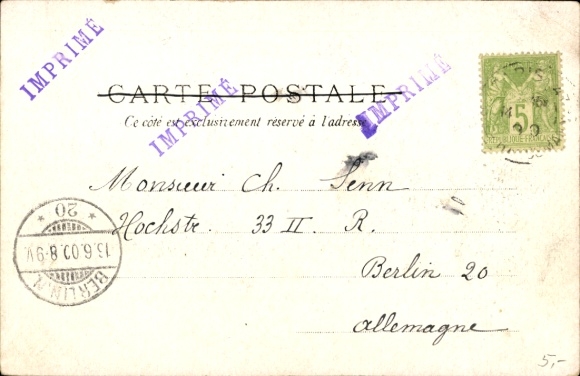 IMPRIMÉ
IMPRIMÉ
IMPRIMÉ
CARTE POSTALE
Ce côté est exclusivement réservé à l'adresse
5
Monsieur Ch. Senn
Hochstr. 33 II R.
Berlin 20
Allemagne
BERLIN, N
13.6.00.8-9V.
* 20 *
5,-